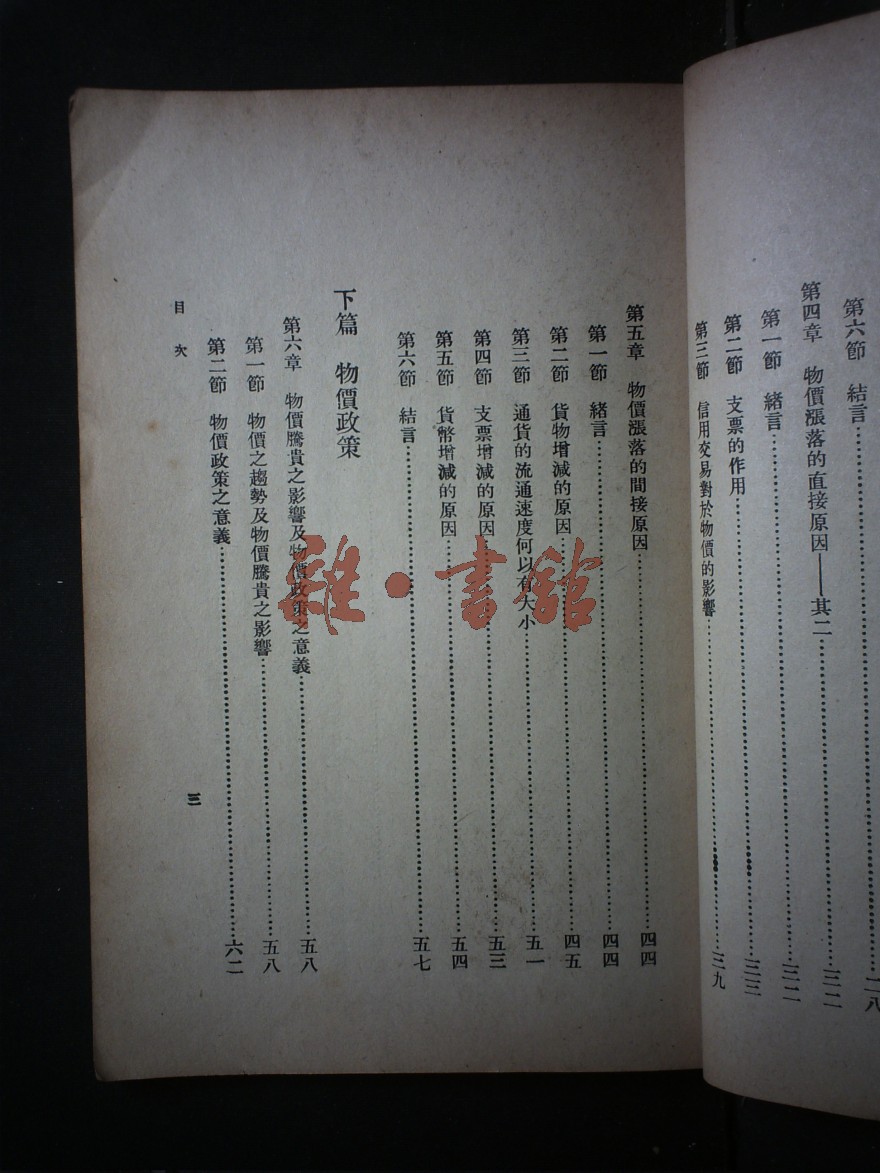 第六節　結言…………二八
第四章　物價漲落的直接原因——其二…………三二
第一節　緒言…………三二
第二節　支票的作用…………三三
第三節　信用交易對於物價的影響…………三九
第五章　物價漲落的間接原因…………四四
第一節　緒言…………四四
第二節　貨物增減的原因…………四五
第三節　通貨的流通速度何以有大小…………五一
第四節　支票增減的原因…………五三
第五節　貨幣增減的原因…………五四
第六節　結言…………五七
下篇　物價政策
第六章　物價騰貴之影響及物價政策之意義…………五八
第一節　物價之趨勢及物價騰貴之影響…………五八
第二節　物價政策之意義…………六二
目次
三
雜·書館